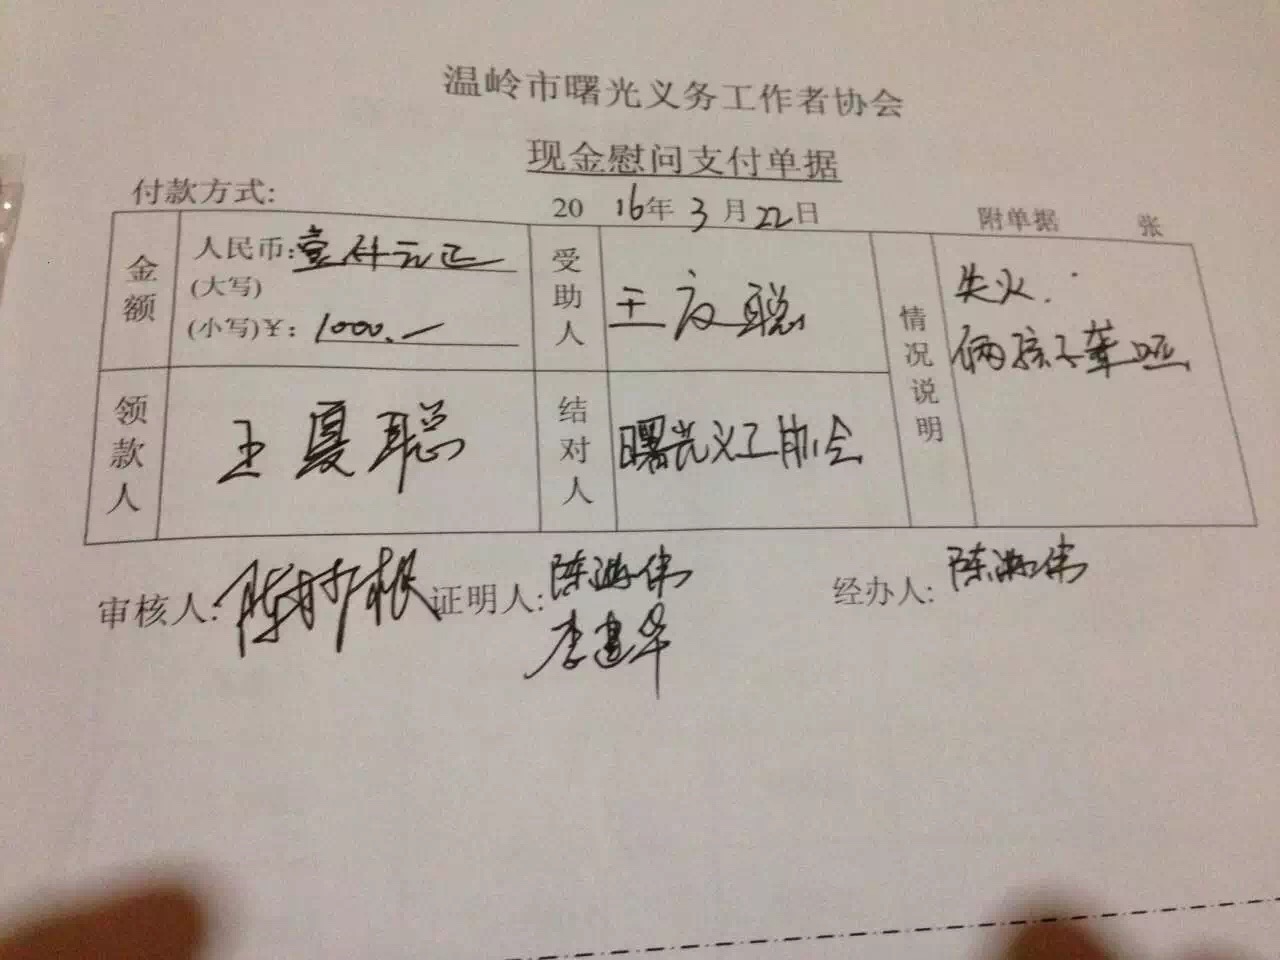 温岭市曙光义务工作者协会
现金慰问支付单据
付款方式:
2016年3月22日
附单据 张
金额
人民币:壹仟元正
(大写)
(小写)¥: 1000.—
受助人
王夏聪
情况说明
失火.
俩孩子聋哑
领款人
王夏聪
结对人
曙光义工协会
审核人:
证明人:
李建华
经办人: